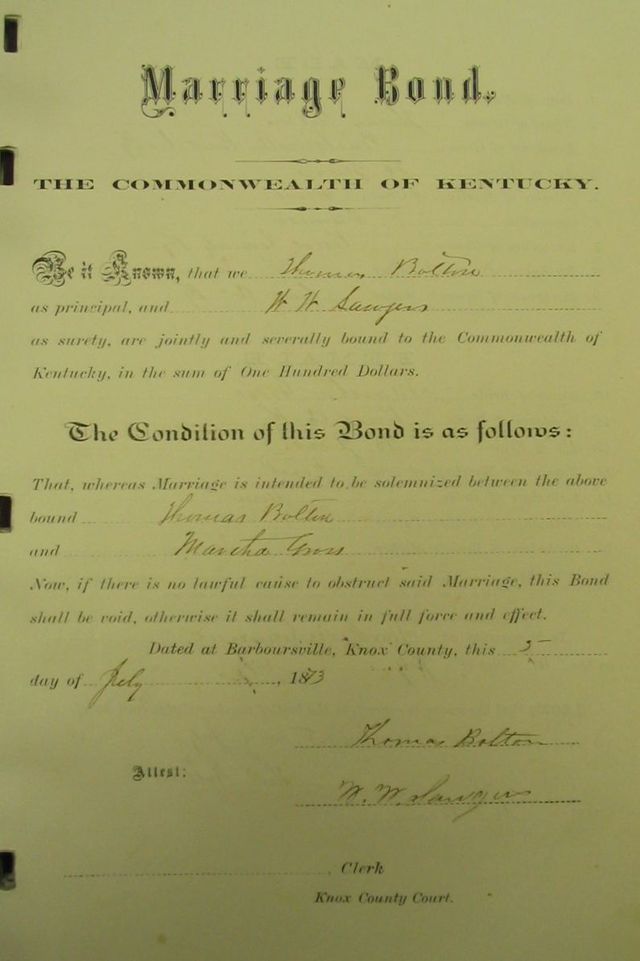 Marriage Bond.
THE COMMONWEALTH OF KENTUCKY.
Be it Known, that we Thomas Bolton
as principal, and W W Sawyers
as surety, are jointly and severally bound to the Commonwealth of
Kentucky, in the sum of One Hundred Dollars.
The Condition of this Bond is as follows:
That, whereas Marriage is intended to be solemnized between the above
bound Thomas Bolton
and Martha Gross
Now, if there is no lawful cause to obstruct said Marriage, this Bond
shall be void, otherwise it shall remain in full force and effect.
Dated at Barboursville, Knox County, this 5
day of July, 1873
Thomas Bolton
Attest:
W. W. Sawyers
, Clerk
Knox County Court.